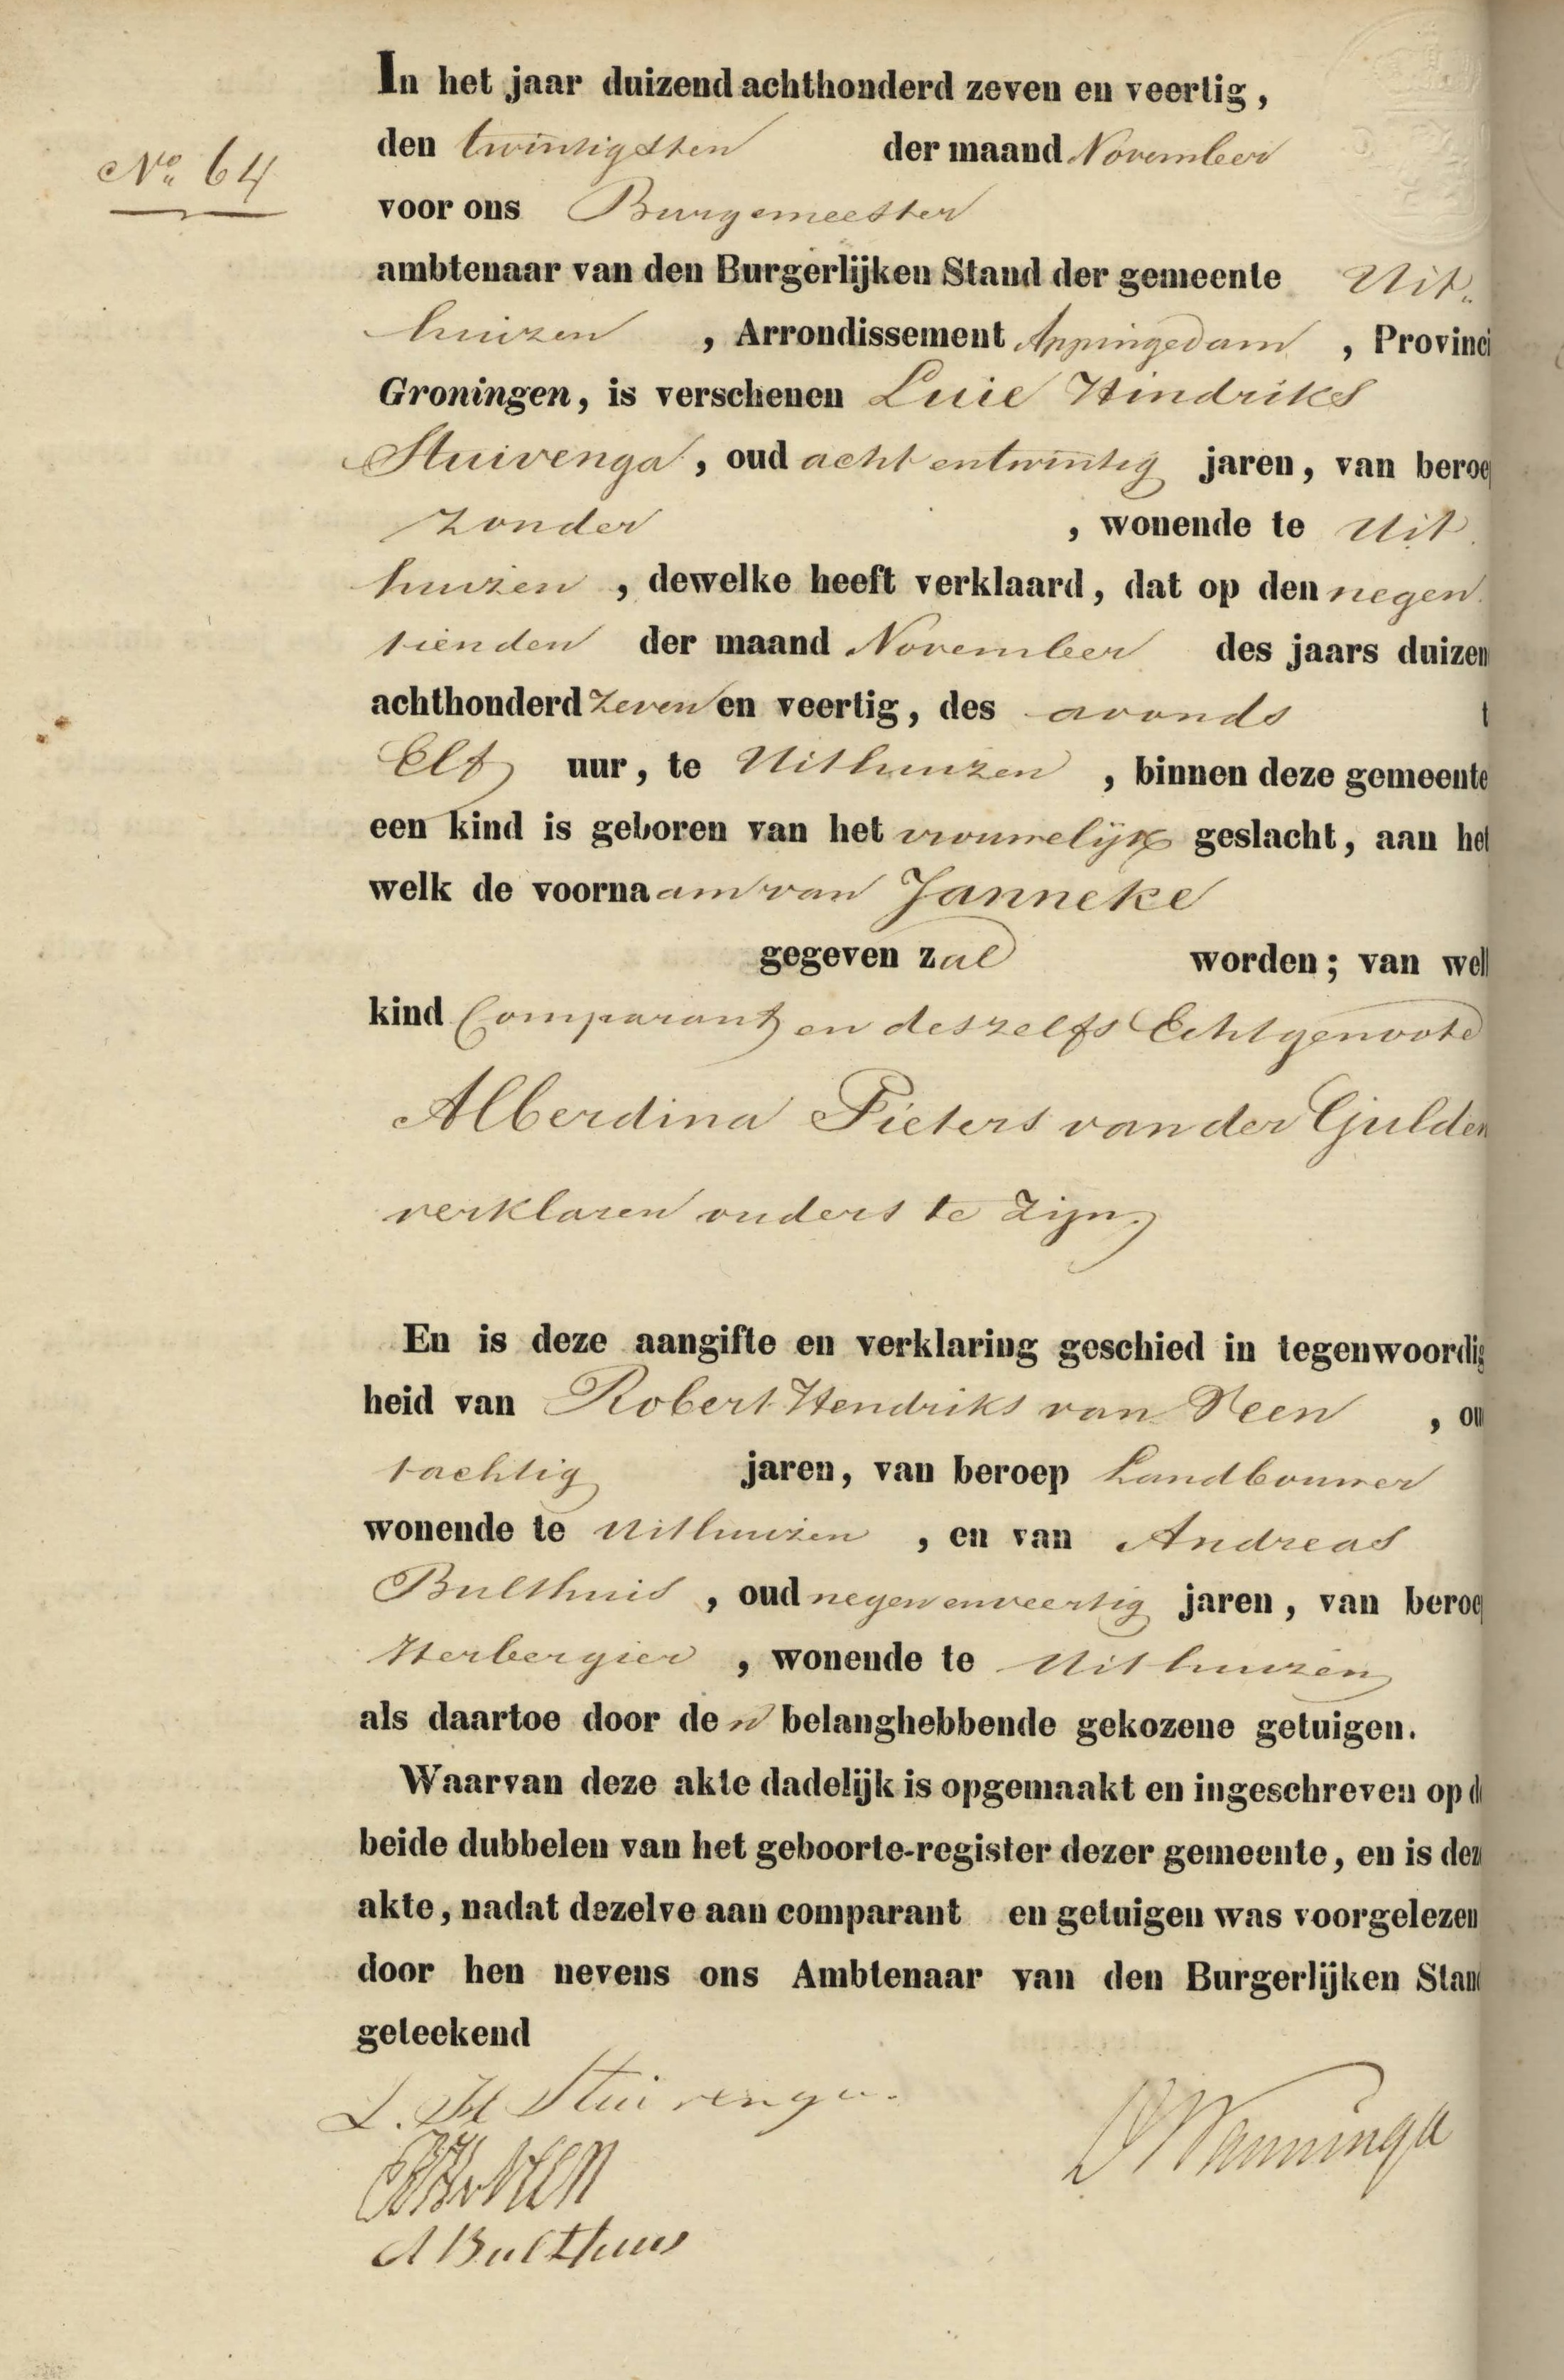 In het jaar duizend achthonderd zeven en veertig,
den twintigsten der maand November
No 64
voor ons Burgemeester
ambtenaar van den Burgerlijken Stand der gemeente Uit-
huizen, Arrondissement Appingedam, Provinci
Groningen, is verschenen Luie Hindriks
Stuivenga, oud acht en twintig jaren, van beroe
zonder, wonende te Uit
huizen, dewelke heeft verklaard, dat op den negen
tienden der maand November des jaars duizen
achthonderd zeven en veertig, des avonds t
Elf uur, te Uithuizen, binnen deze gemeente
een kind is geboren van het vrouwelijk geslacht, aan het
welk de voornaam van Janneke
gegeven zal worden; van wel
kind Comparant en deszelfs Echtgenoote
Alberdina Pieters van der Gulden
verklaren ouders te zijn.
En is deze aangifte en verklaring geschied in tegenwoordig
heid van Robert Hendriks van Veen, ou
tachtig jaren, van beroep Landbouwer
wonende te Uithuizen, en van Andreas
Bulthuis, oud negen en veertig jaren, van beroe
Herbergier, wonende te Uithuizen
als daartoe door den belanghebbende gekozene getuigen.
Waarvan deze akte dadelijk is opgemaakt en ingeschreven op d
beide dubbelen van het geboorte-register dezer gemeente, en is dez
akte, nadat dezelve aan comparant en getuigen was voorgelezen
door hen nevens ons Ambtenaar van den Burgerlijken Stan
geteekend
L. H Stuivenga.
A Bulthuis